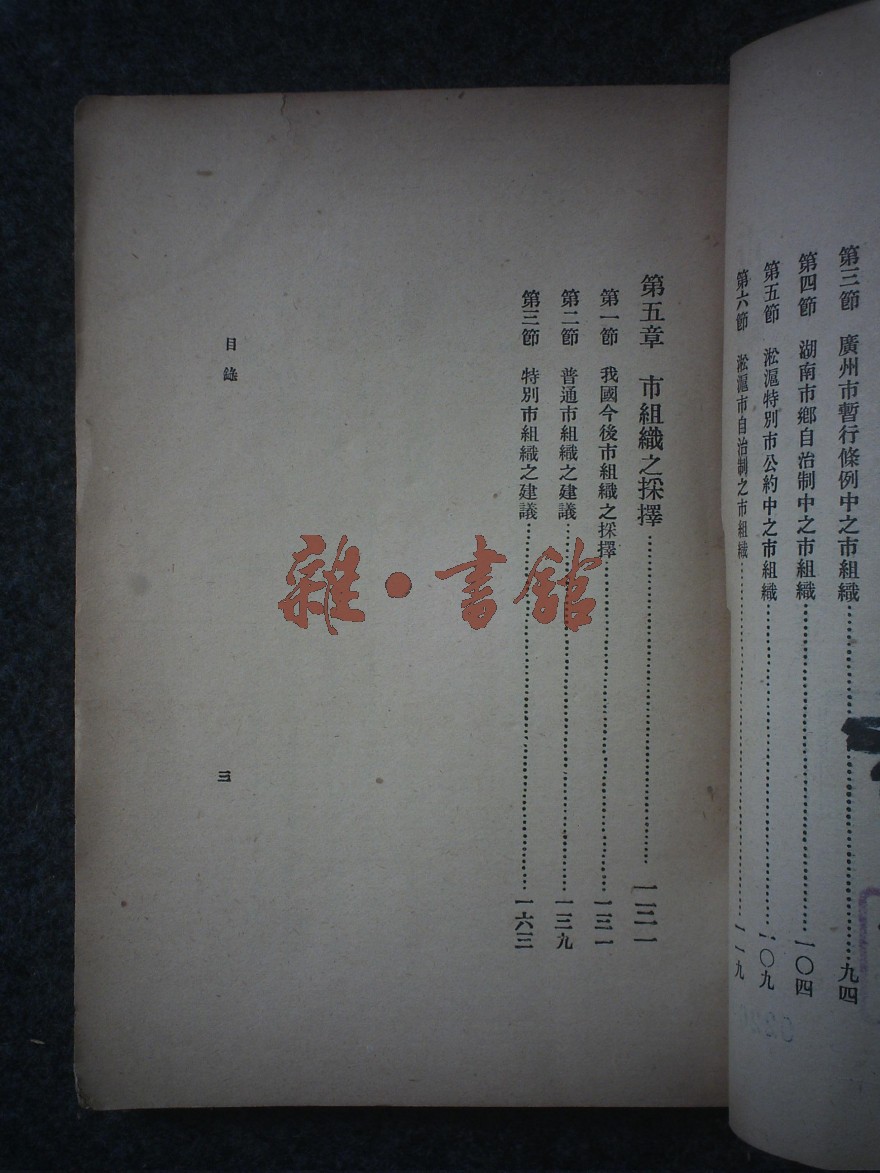 第三節　廣州市暫行條例中之市組織……九四
第四節　湖南市鄉自治制中之市組織……一〇四
第五節　淞滬特別市公約中之市組織……一〇九
第六節　淞滬市自治制之市組織……一一九
第五章　市組織之採擇……一三一
第一節　我國今後市組織之採擇……一三一
第二節　普通市組織之建議……一三九
第三節　特別市組織之建議……一六三
目錄
三
雜·書館